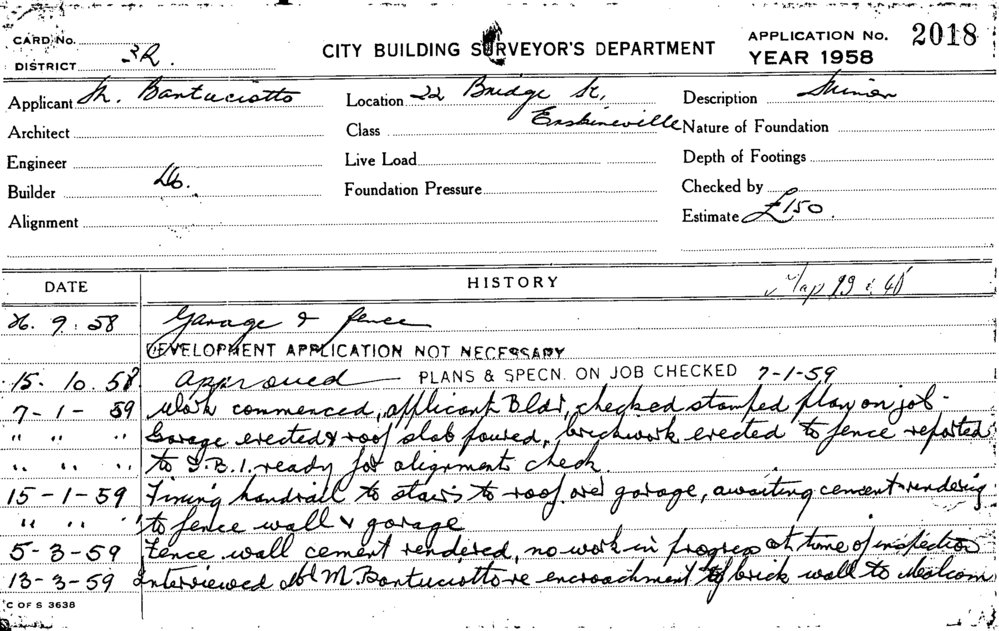 CARD No.
DISTRICT 3R.
CITY BUILDING SURVEYOR'S DEPARTMENT
APPLICATION No. 2018
YEAR 1958
Applicant M. Bantuciotto
Location 22 Bridge St,
Erskineville
Description Minor
Architect
Class
Nature of Foundation
Engineer
Live Load
Depth of Footings
Builder Do.
Foundation Pressure
Checked by
Alignment
Estimate £150.
DATE
HISTORY
Map 19 & 40
26. 9. 58 Garage & fence
DEVELOPMENT APPLICATION NOT NECESSARY
15. 10. 58 Approved PLANS & SPECN. ON JOB CHECKED 7-1-59
7-1-59 Work commenced, applicant Bldr, checked stamped plan on job.
" " " Garage erected & roof slab poured, brickwork erected to fence reported
" " " to D.B.I. ready for alignment check.
15-1-59 Fixing handrail to stairs to roof over garage, awaiting cement rendering
" " " to fence wall & garage
5-3-59 Fence wall cement rendered, no work in progress at time of inspection
13-3-59 Interviewed M Bantuciotto re encroachment of brick wall to
C OF S 3638